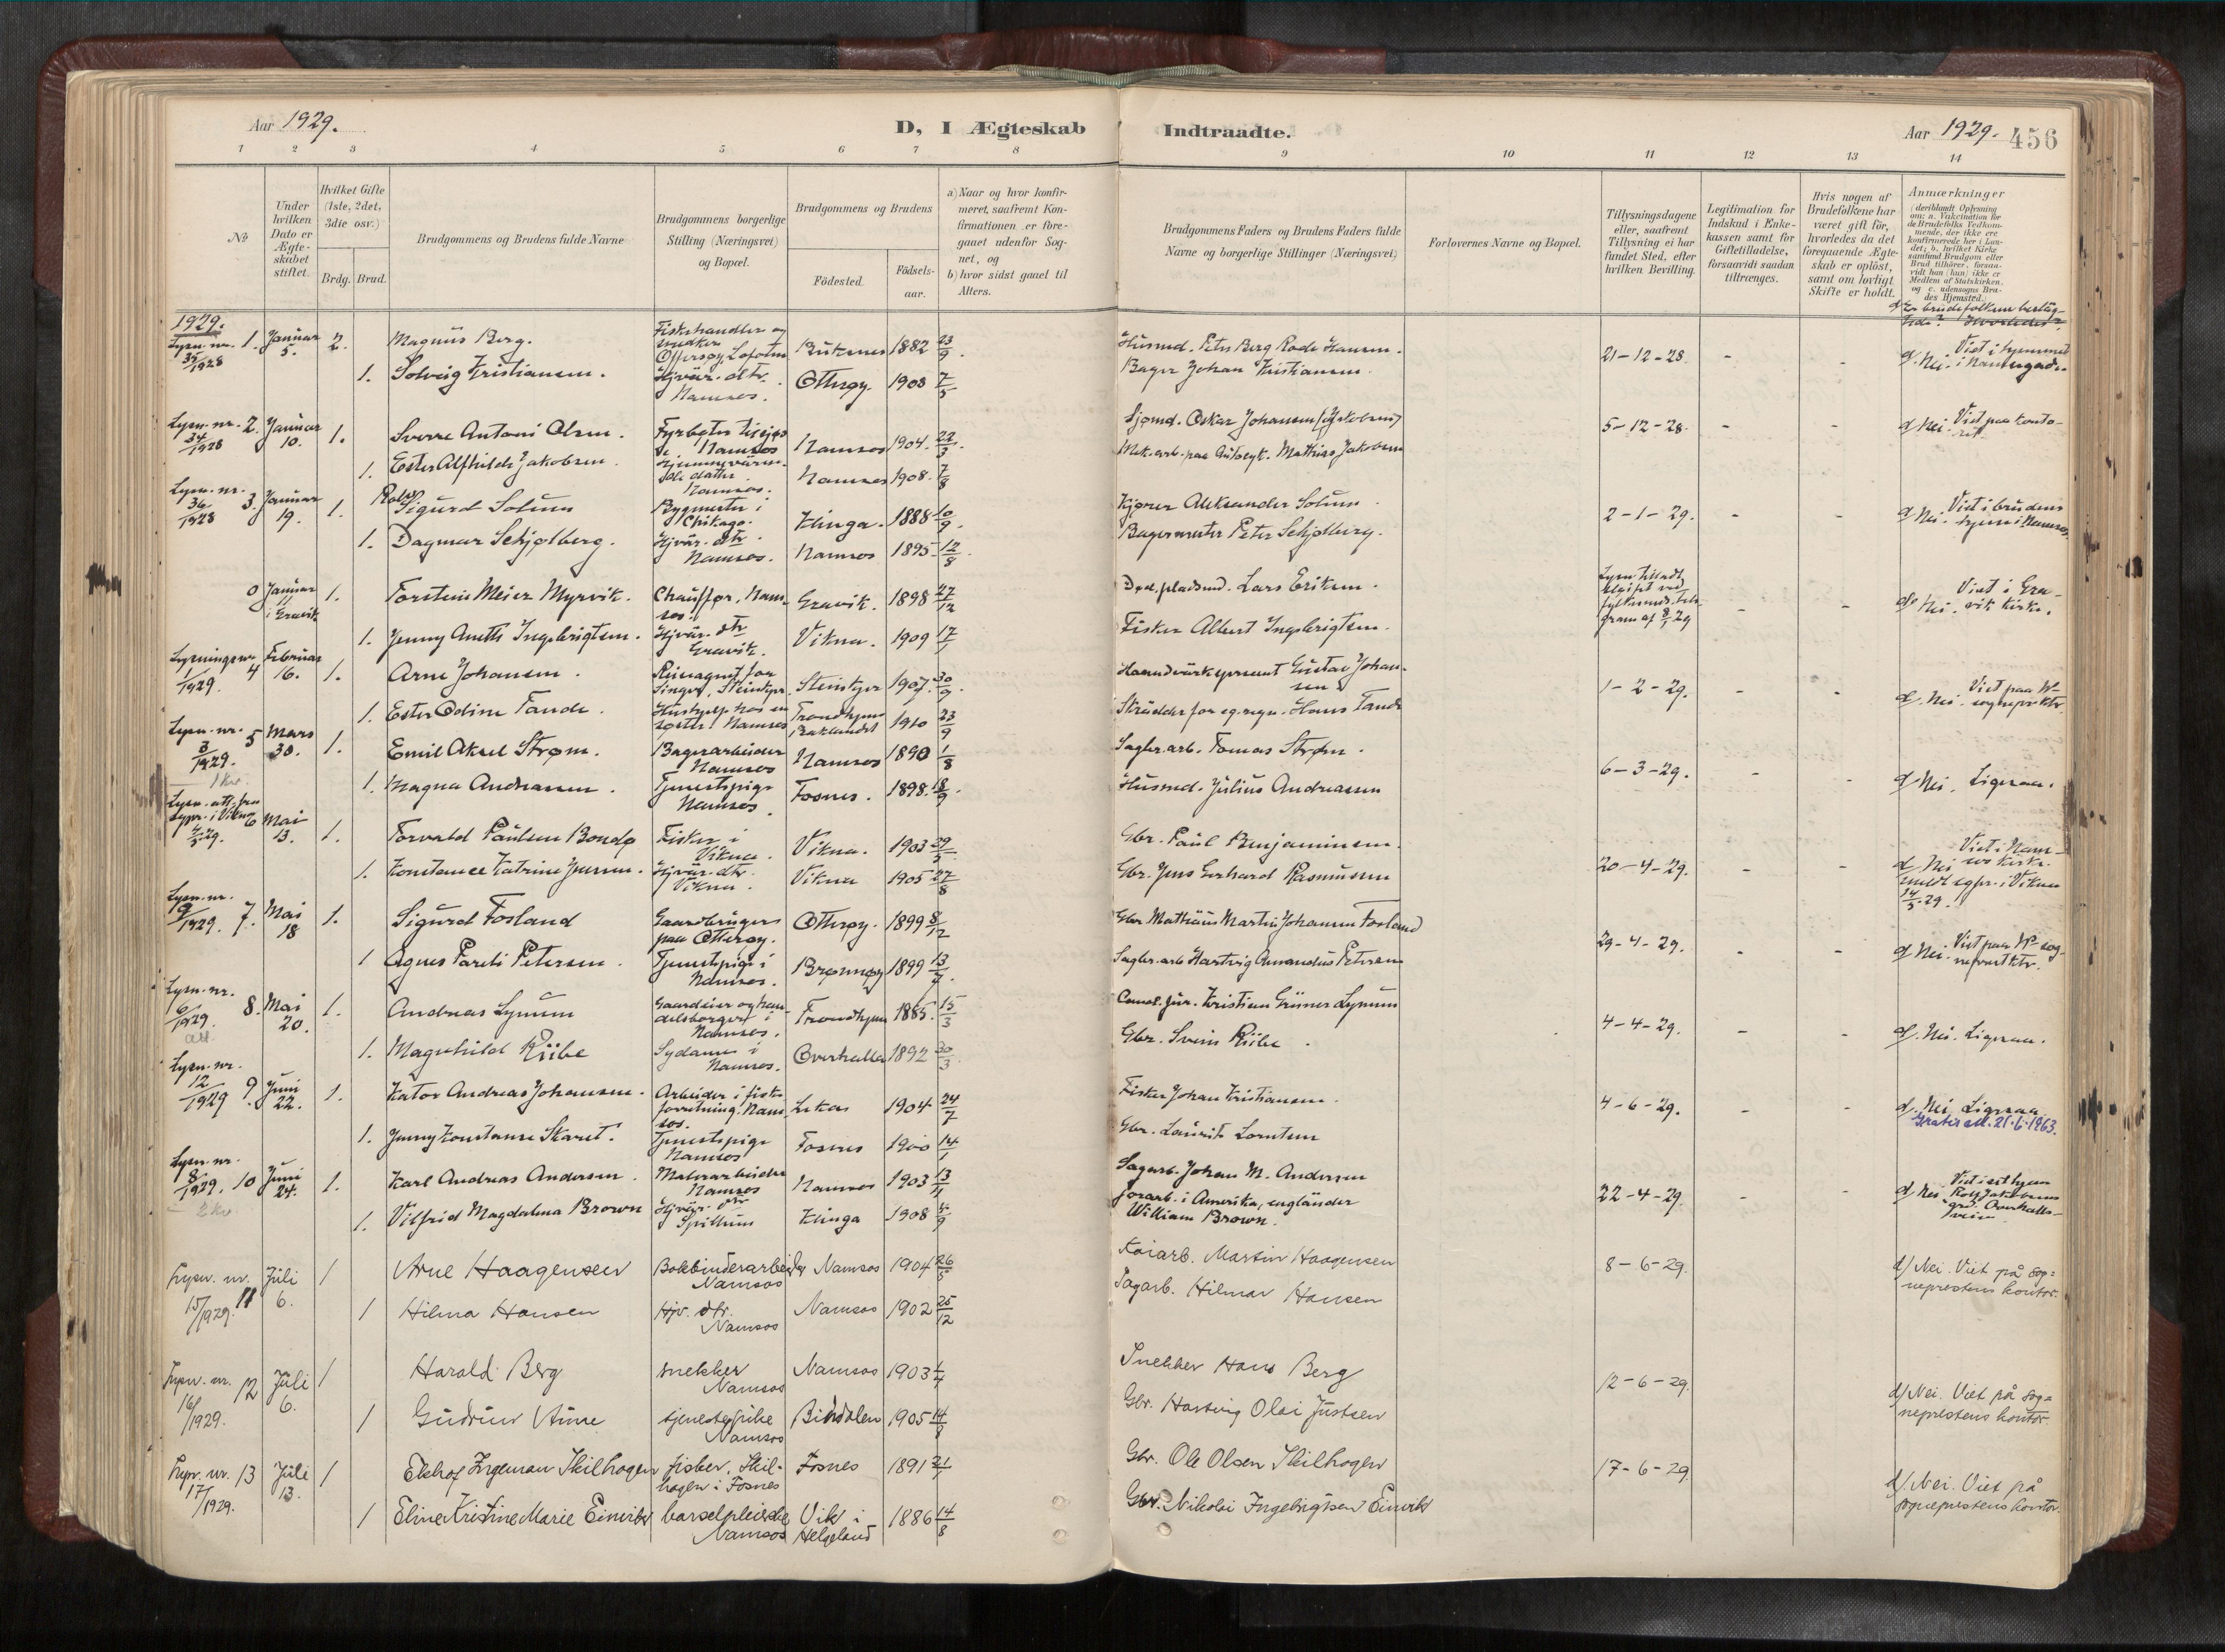 Aar 1929.
D, I Ægteskab
Indtraadte.
Aar 1929. 456
1 2 3 4 5 6 7 8 9 10 11 12 13 14
No
Under hvilken Dato er Ægteskabet stiftet.
Hvilket Gifte (1ste, 2det, 3die osv.)
Brdg. Brud.
Brudgommens og Brudens fulde Navne
Brudgommens borgerlige Stilling (Næringsvei) og Bopæl.
Brudgommens og Brudens
Födested.
Födselsaar.
a) Naar og hvor konfirmeret, saafremt Konfirmationen er foregaaet udenfor Sognet, og
b) hvor sidst gaaet til Alters.
Brudgommens Faders og Brudens Faders fulde Navne og borgerlige Stillinger (Næringsvei)
Forlovernes Navne og Bopæl.
Tillysningsdagene eller, saafremt Tillysning ei har fundet Sted, efter hvilken Bevilling.
Legitimation for Indskud i Enkekassen samt for Giftetilladelse, forsaavidt saadan tiltrænges.
Hvis nogen af Brudefolkene har været gift för, hvorledes da det foregaaende Ægteskab er oplöst, samt om lovligt Skifte er holdt.
Anmærkninger
(deriblandt Oplysning om: a. Vakcination for de Brudefolks Vedkommende, der ikke ere konfirmerede her i Landet; b. hvilket Kirkesamfund Brudgom eller Brud tilhörer, forsaavidt han (hun) ikke er Medlem af Statskirken, og c. udensogns Brudes Hjemsted.)
1929.
Lysn. nr. 35/1928 1. Januar 5. 2. Magnus Berg. Fiskehandler og snedker Offersøy, Lofoten Buksnes 1882 23/9. Husmd. Peter Berg Rode Hansen. 21-12-28. - - d. Nei. Viet i hjemmet
1. Solveig Kristiansen. Hjvær. dtr. Namsos. Otterøy 1908 7/5 Bager Johan Kristiansen.
Lysn. nr. 34/1928 2. Januar 10. 1. Sverre Antoni Olsen. Fyrbøter Namsos Namsos 1904. 22/3. Sjømd. Oskar Johansen 5-12-28. - - d. Nei. Viet paa kontoret.
1. Ester Alfhilde Jakobsen. datter Namsos. Namsos 1908. 7/8 Mek. arb. paa Mathias Jakobsen
Lysn. nr. 36/1928 3. Januar 19. 1. Sigurd Solum Bygmester i Chikago. Klinga. 1888 10/9. Kjører Aleksander Solum 2-1-29. - - d. Nei. Viet i brudens hjem i Namsos.
1. Dagmar Schjølberg. Hjvær. dtr Namsos. Namsos 1895 12/8. Bagermester Peter Schjølberg.
0 Januar 11 i Gravik 1. Torstein Meier Myrvik. Chauffør, Namsos. Gravik. 1898 27/12 Død. pladsmd. Lars Eriksen. - - d. Nei. Viet i Gravik kirke.
1. Jenny Aneth Ingebrigtsen. Hjvær. dtr Gravik. Vikna. 1909 17/1 Fisker Albert Ingebrigtsen.
Lysningsnr 1/1929. 4 Februar 16. 1. Arne Johansen. Reiseagent for Singer, Steinkjer. Steinkjer 1907. 30/9. Haandværksprsent Gustav Johansen 1-2-29. - - d. Nei. Viet paa
1. Ester Odine Tande. Hushjelp hos sin søster i Namsos Trondhjem Baklandet 1910 23/9 Skrædder for eg. regn. Hans Tande
Lysn. nr. 3/1929. 5 Mars 30. 1. Emil Aksel Strøm. Bagerarbeider Namsos Namsos 1890 1/8 Sagbr. arb. Tomas Strøm. 6-3-29. - - d. Nei. Ligesaa.
1 kr. 1. Magna Andreassen. Tjenestepige Namsos Fosnes. 1898. 18/9. Husmd. Julius Andreassen
Lysn. att. fra sogpr. i Vikna 4/5 29. 6 Mai 13. 1. Torvald Paulsen Bondø Fisker i Vikna. Vikna. 1903 29/5. Gbr. Paul Benjaminsen. 20-4-29. - - d. Nei. Viet i Namsos kirke. meldt sogpr. i Vikna 14/5 29.
1. Konstance Katrine Jensen. Hjvær. dtr. Vikna. Vikna 1905 27/8 Gbr. Jens Gerhard Rasmussen
Lysn. nr. 9/1929. 7. Mai 18 1. Sigurd Fosland Gaardbruger paa Otterøy. Otterøy. 1899 8/12 Gbr. Mathæus Martin Johansen Fosland 29-4-29. - - d. Nei. Viet paa
1 Agnes Pareli Petersen. Tjenestepige i Namsos. Brønnøy 1899 13/7. Sagbr. arb Hartvig Amandus Petersen
Lysn. nr. 6/1929. 8. Mai 20. 1. Andreas Lynum Gaardeier og handelsborger i Namsos. Trondhjem 1885. 15/3 Kristian Grüner Lynum 4-4-29. - - d. Nei. Ligesaa.
att 1. Magnhild Riibe Sydame i Namsos. Overhalla 1892 30/3. Gbr. Svein Riibe.
Lysn. nr. 12/1929 9. Juni 22. 1. Kator Andreas Johansen. Arbeider i fiskeforretning. Namsos. Leka 1904 24/7 Fisker Johan Kristiansen. 4-6-29. - - d. Nei Ligesaa.
1. Jenny Konstanse Skaret. Tjenestepige Namsos Fosnes 1900 14/1 Gbr. Laurits Lorntsen Gratis att. 21-6-1963.
Lysn. nr. 8/1929. 10 Juni 24. 1. Karl Andreas Andersen. Malerarbeider Namsos Namsos 1903 13/11 Sagarb. Johan M. Andersen 22-4-29. - - d. Nei.
2 kr 1. Vilfrid Magdalena Brown Hjvær. dtr Spillum Klinga 1908 4/9 forarb. i Amerika, engländer William Brown.
Lysn. nr. 15/1929. 11 Juli 6. 1 Arne Haagensen Bokbinderarbeider Namsos Namsos 1904 26/5 Kaiarb. Martin Haagensen 8-6-29. d) Nei. Viet på sogneprestens kontor.
1 Hilma Hansen Hjv. dtr. Namsos Namsos 1902 25/12 Sagarb. Hilmar Hansen
Lysn. nr. 16/1929. 12 Juli 6. 1 Harald Berg snekker Namsos Namsos 1903 Snekker Hans Berg 12-6-29. d) Nei. Viet på sogneprestens kontor.
1 Gudrun Aune tjenestepike Namsos Bindalen 1905 14/8 Gbr. Hartvig Olai Justsen
Lysn. nr. 17/1929. 13 Juli 13. 1 Ekhof Ingeman Skilhagen fisker, Skilhagen i Fosnes Fosnes 1891 21/7 Gbr. Ole Olsen Skilhagen 17-6-29. d) Nei. Viet på sogneprestens kontor.
1 Eline Kristine Marie Einvik barselpleierske Namsos Vik i Helgeland 1886 14/8 Gbr. Nikolai Ingebrigtsen Einvik